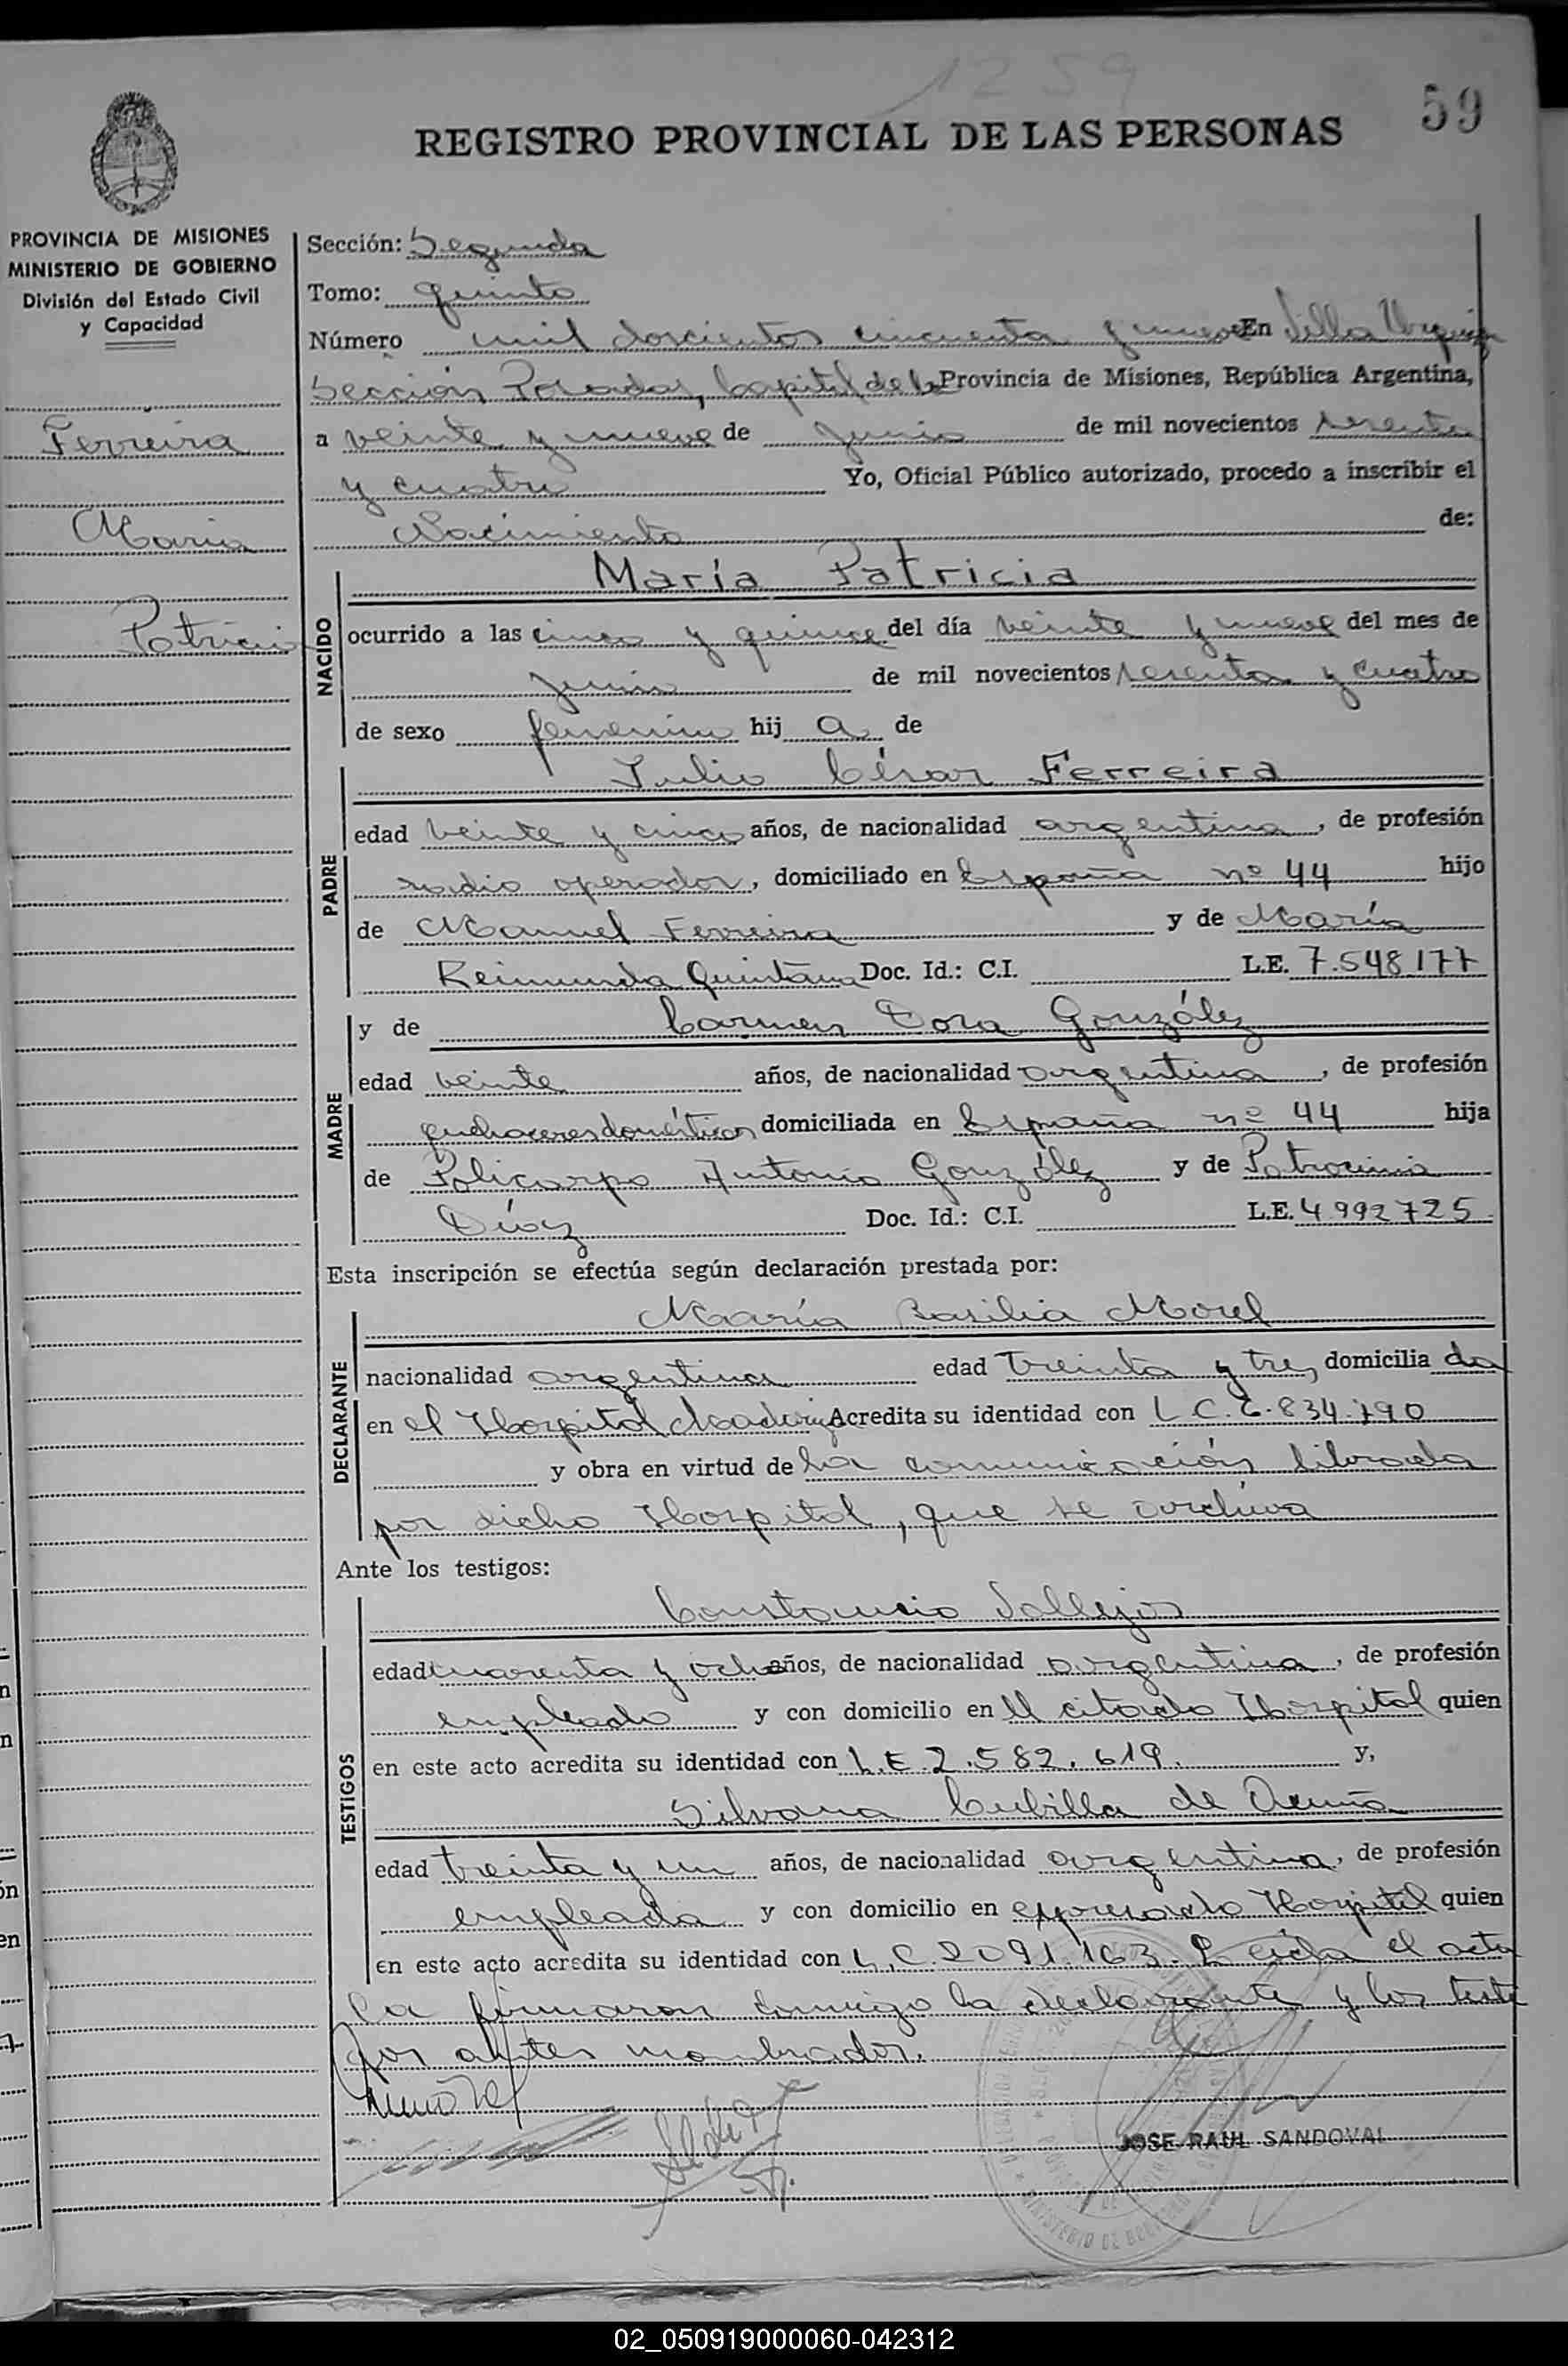 1259
59
REGISTRO PROVINCIAL DE LAS PERSONAS
PROVINCIA DE MISIONES
MINISTERIO DE GOBIERNO
División del Estado Civil
y Capacidad
Ferreira
Maria
Patricia
Sección: Segunda
Tomo: quinto
Número mil doscientos cincuenta y nueve En Villa Urquiza
Sección Posadas, Capital de la Provincia de Misiones, República Argentina,
a veinte y nueve de junio de mil novecientos sesenta
y cuatro Yo, Oficial Público autorizado, procedo a inscribir el
Nacimiento de:
NACIDO
María Patricia
ocurrido a las cinco y quince del día veinte y nueve del mes de
junio de mil novecientos sesenta y cuatro
de sexo femenino hij a de
PADRE
Julio César Ferreira
edad veinte y cinco años, de nacionalidad argentina, de profesión
radio operador, domiciliado en España nº 44 hijo
de Manuel Ferreira y de María
Reimunda Quintana Doc. Id.: C.I. L.E. 7.548.177
MADRE
y de Carmen Dora González
edad veinte años, de nacionalidad argentina, de profesión
quehaceres domésticos domiciliada en España nº 44 hija
de Policarpo Antonio González y de Patrocinia
Díaz Doc. Id.: C.I. L.E. 4.992.725
Esta inscripción se efectúa según declaración prestada por:
DECLARANTE
María Basilia Morel
nacionalidad argentina edad treinta y tres domicilia da
en el Hospital Madariaga Acredita su identidad con L.C. 834.790
y obra en virtud de la comunicación librada
por dicho Hospital, que se archiva
Ante los testigos:
TESTIGOS
Constancio Vallejos
edad cuarenta y ocho años, de nacionalidad argentina, de profesión
empleado y con domicilio en el citado Hospital quien
en este acto acredita su identidad con L.E. 2.582.619. y,
Silvana Cubilla de Acuña
edad treinta y un años, de nacionalidad argentina, de profesión
empleada y con domicilio en expresado Hospital quien
en este acto acredita su identidad con L.C. 2091.163. Leída el acta
la firmaron conmigo la declarante y los testi
gos antes nombrados.
JOSE RAUL SANDOVAL
02_050919000060-042312